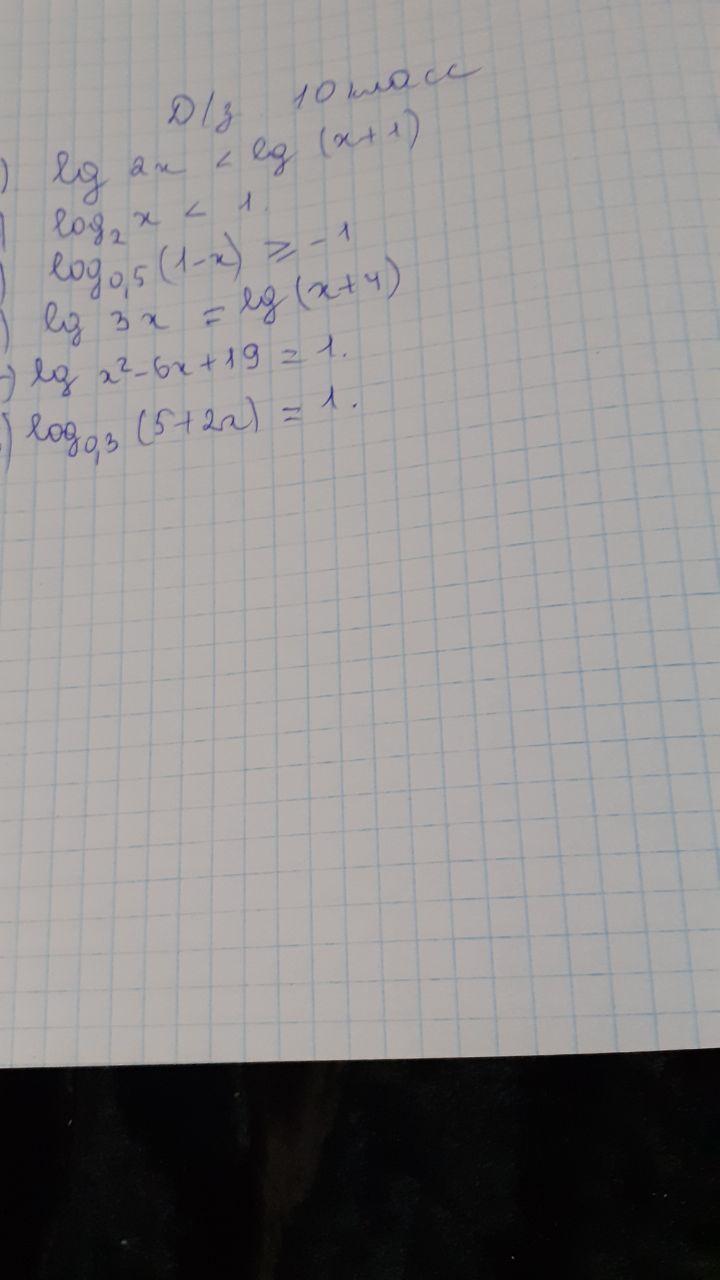 Д/з 10 класс
) lg 2x < lg (x+1)
) log₂ x < 1.
) log₀,₅ (1-x) ⩾ -1
) lg 3x = lg (x+4)
) lg x²-6x+19 = 1.
) log₀,₃ (5+2x) = 1.